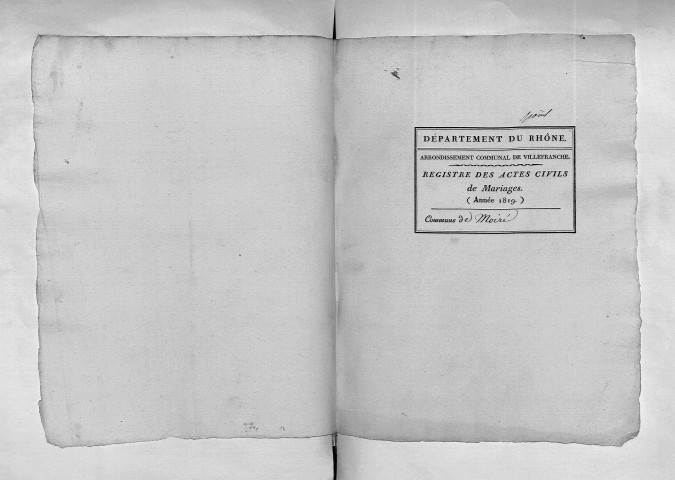 DÉPARTEMENT DU RHÔNE.
ARRONDISSEMENT COMMUNAL DE VILLEFRANCHE.
REGISTRE DES ACTES CIVILS
de Mariages.
( Année 1819. )
Commune de Moiré